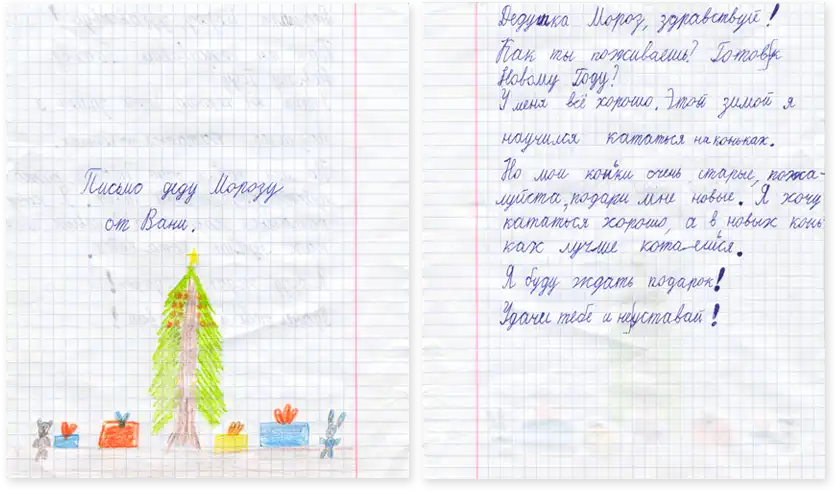 Письмо деду Морозу
от Вани.
Дедушка Мороз, здравствуй!
Как ты поживаешь? Готов к
Новому Году?
У меня всё хорошо. Этой зимой я
научился кататься на коньках.
Но мои коньки очень старые, пожа-
луйста, подари мне новые. Я хочу
кататься хорошо, а в новых конь-
ках лучше кота-ешься.
Я буду ждать подарок!
Удачи тебе и не уставай!